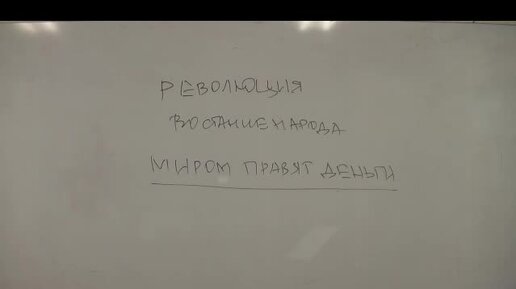 РЕВОЛЮЦИЯ
ВОСТАНИЕ НАРОДА
МИРОМ ПРАВЯТ ДЕНЬГИ